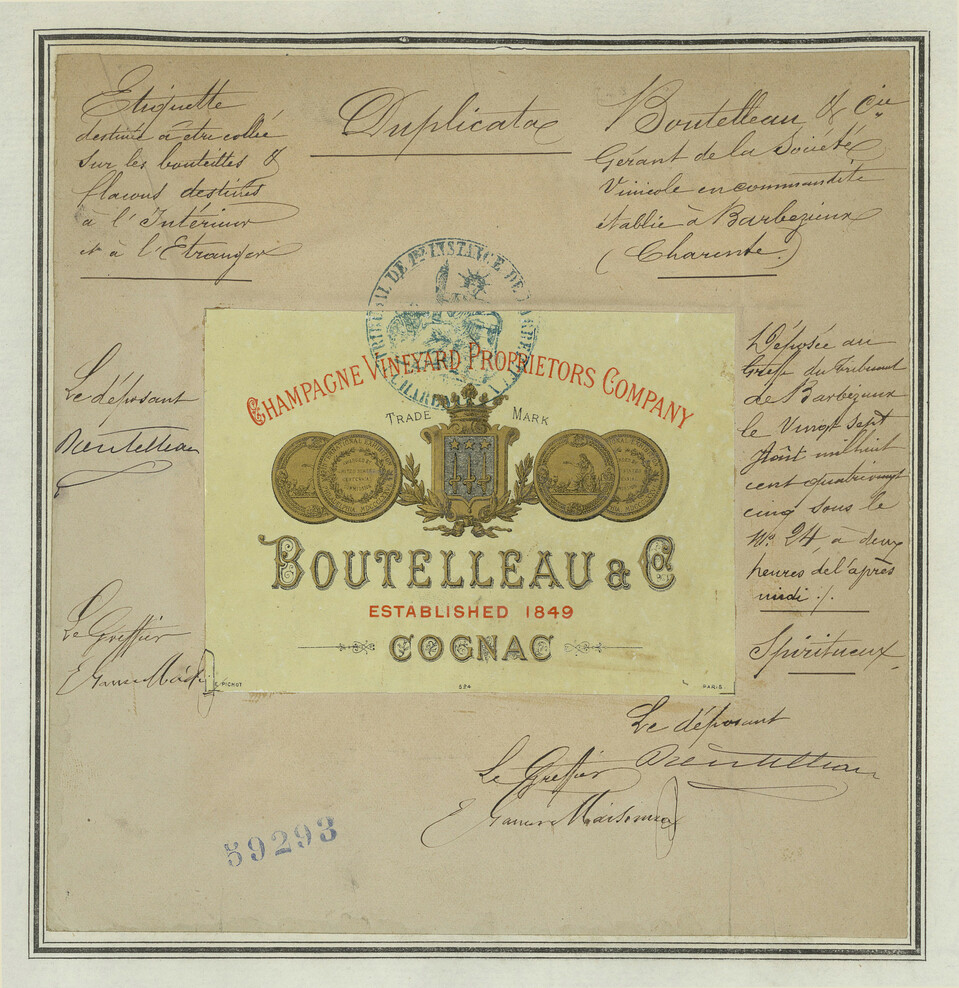 Etiquette
destinée à être collée
sur les bouteilles &
flacons destinés
à l'Intérieur
et à l'Etranger
Duplicata
Boutelleau & Cie
Gérant de la Société
Vinicole en commandite
établie à Barbezieux
(Charente)
TRIBUNAL DE 1RE INSTANCE DE BARBEZIEUX
CHAMPAGNE VINEYARD PROPRIETORS COMPANY
TRADE MARK
BOUTELLEAU & Co
ESTABLISHED 1849
COGNAC
PICHOT
524
PARIS
Le déposant
Boutelleau
Le Greffier
Déposée au
Greffe du Tribunal
de Barbezieux
le Vingt sept
Août mil huit
cent quatre vingt
cinq sous le
No. 24, à deux
heures de l'après
midi ./.
Spiritueux
Le déposant
Boutelleau
Le Greffier
59293